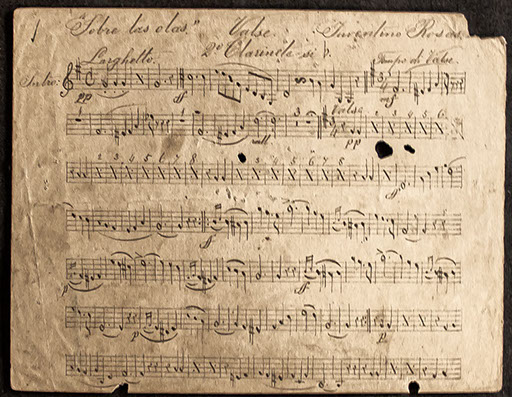 1
"Sobre las olas." Valse. Juventino Rosas.
2º Clarinete si ♭.
Larghetto. Tempo di Valse.
Intro:
pp ff mf
1 1 3 Valse 2 3 4 5 6
rall pp
2 3 4 5 6 7 8 2 3 4 5 6 7 8
ff
p ff
p p